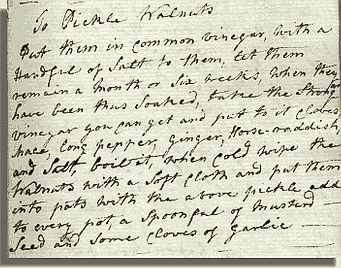 To Pickle Walnuts
Put them in common vinegar, with a
Handful of Salt to them, let them
remain a month or Six weeks, when they
have been thus soaked, take the strongest
vinegar you can get and put to it Cloves
mace, long pepper, Ginger, Horse-raddish,
and Salt, boil it, when Cold wipe the
Walnuts with a Soft Cloth and put them
into pots with the above pickle add
to every pot a Spoonful of mustard
Seed and Some Cloves of Garlic